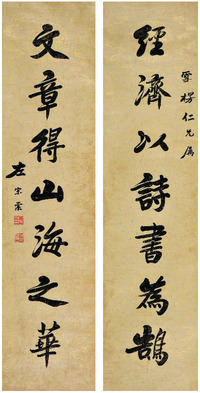 仁兄屬
經濟以詩書為鵠
文章得山海之華
左宗棠